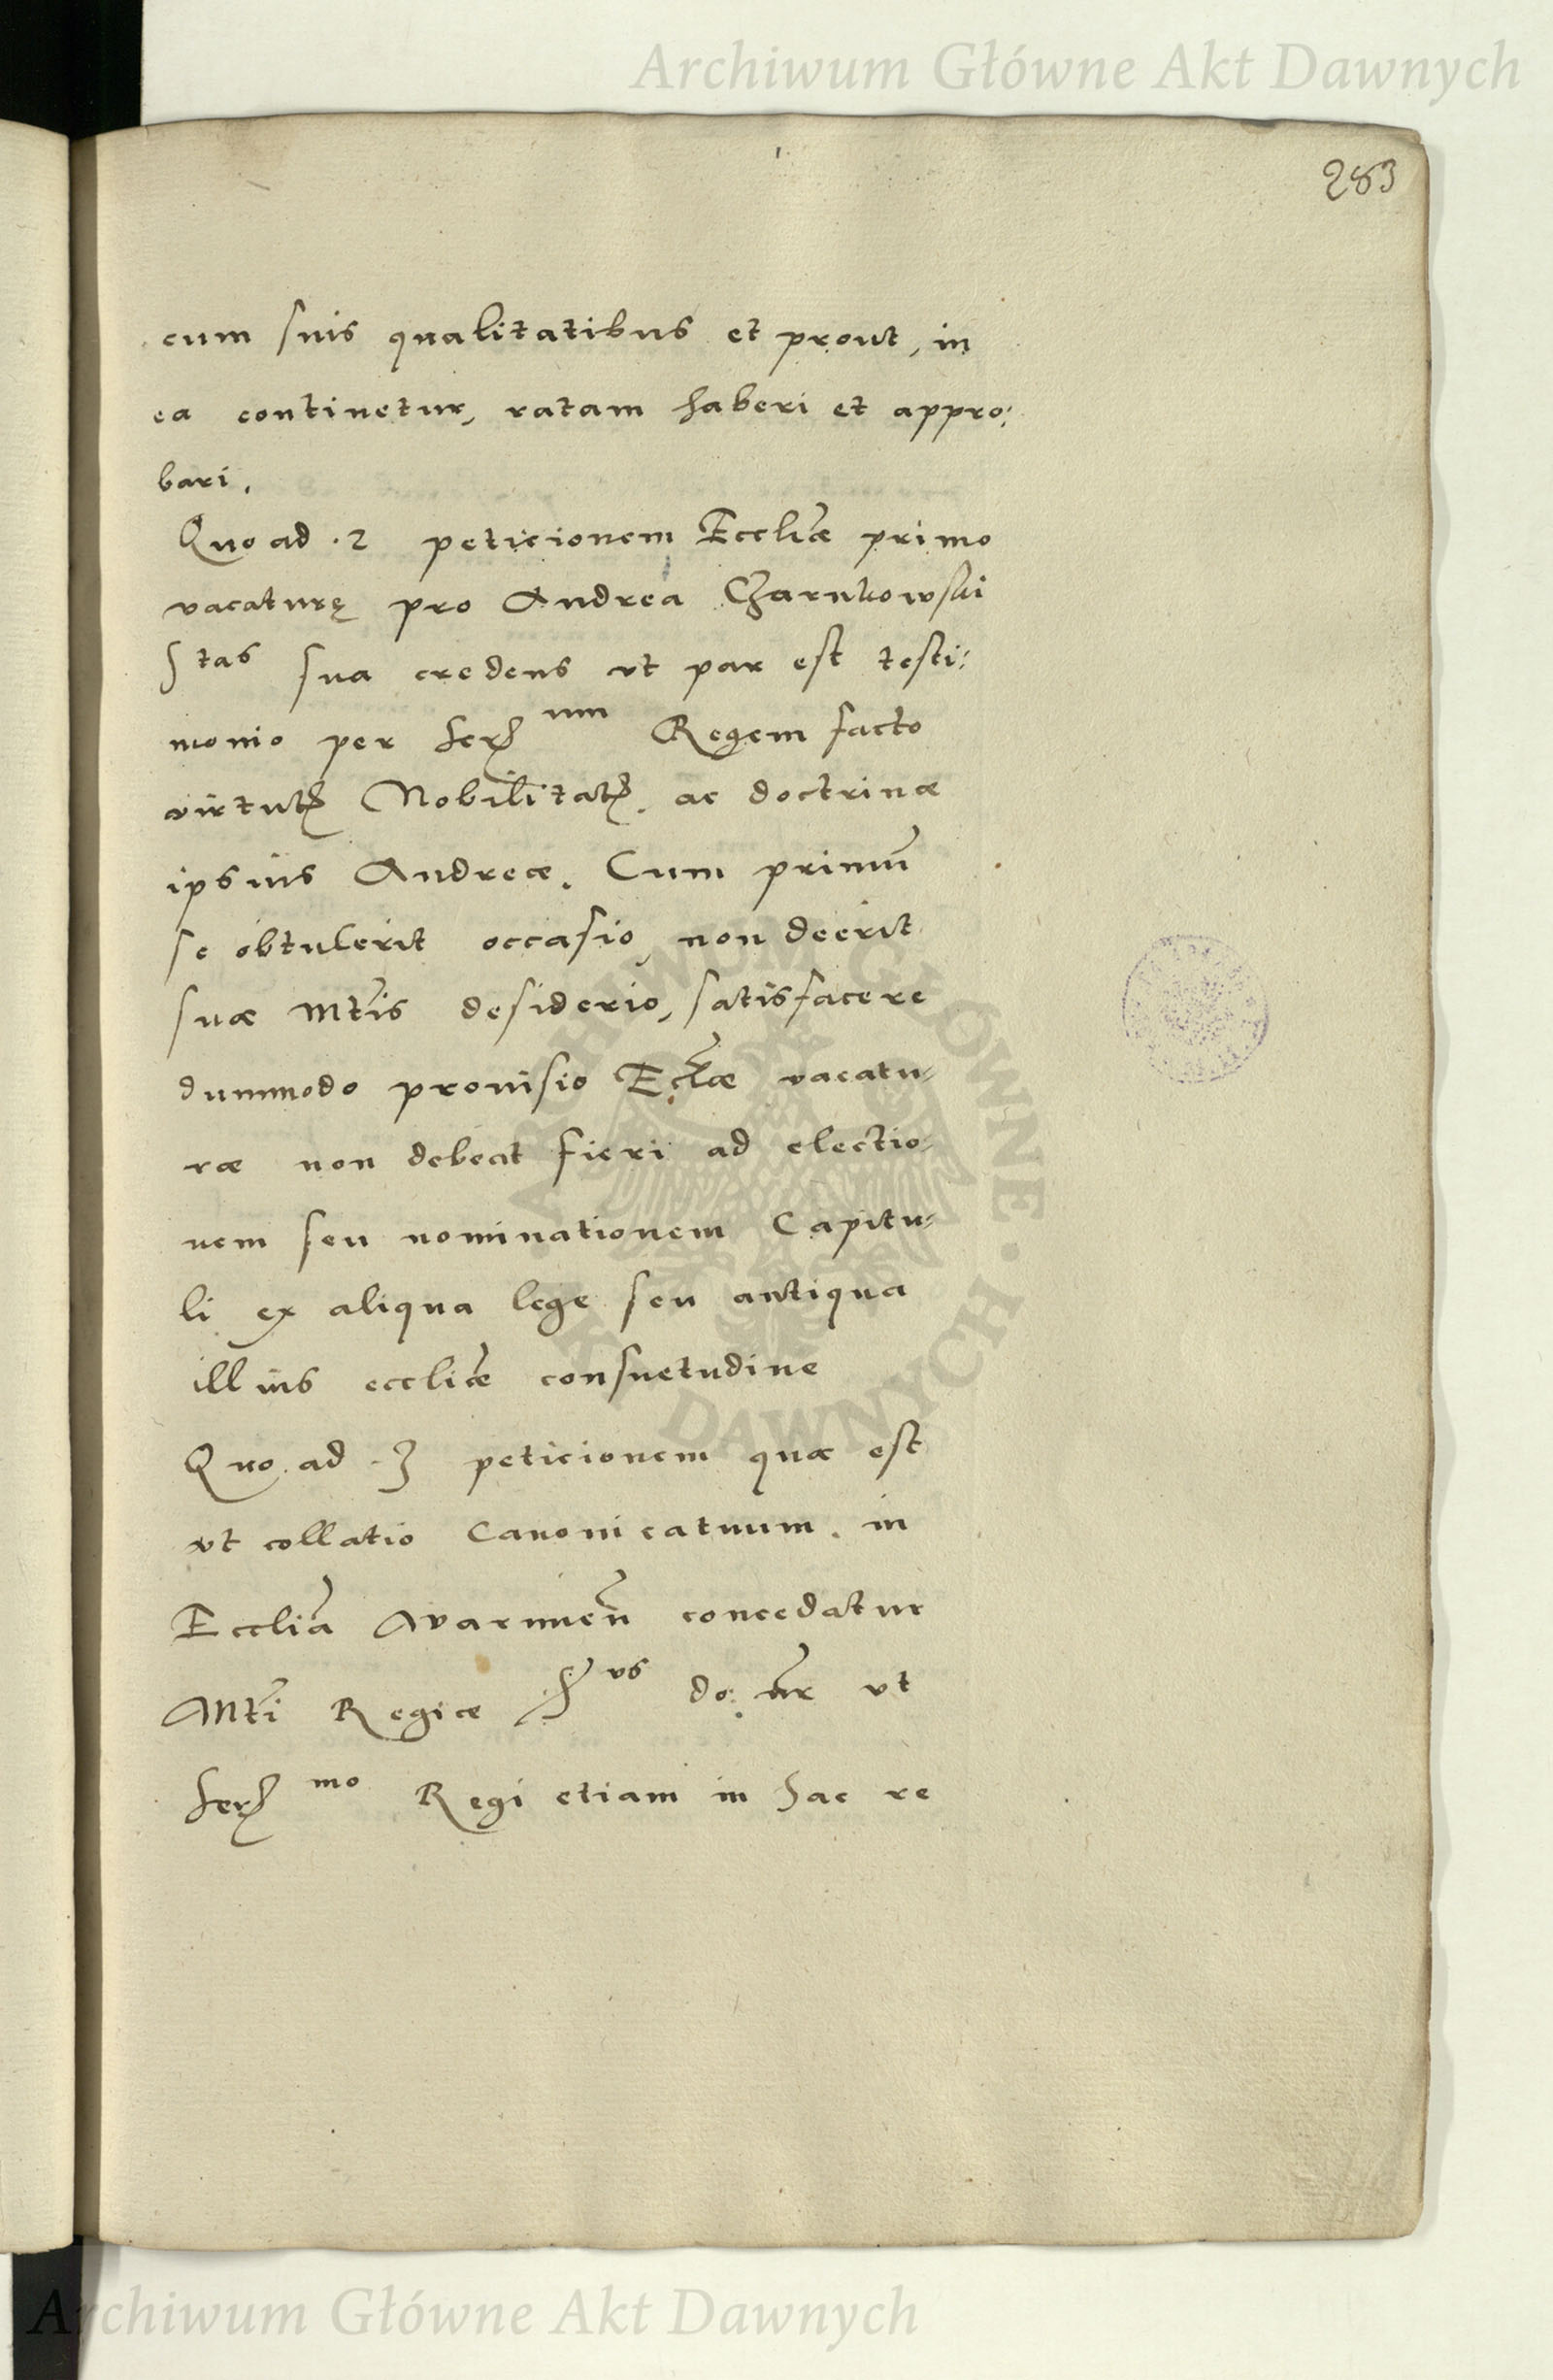 Archiwum Główne Akt Dawnych
283
cum suis qualitatibus et prout, in
ea continetur, ratam haberi et appro:
bari.
Quo ad .2 peticionem Eccliæ primo
vacaturę pro Andrea Czarnkowski
Stas sua credens ut par est testi:
monio per Ser um Regem facto
virtutis Nobilitatis. ac doctrinæ
ipsius Andreæ. Cum primũ
se obtulerit occasio, non deerit
suæ Mtis desiderio, satisfacere
dummodo provisio Ecclæ vacatu-
ræ non debeat fieri ad electio-
nem seu nominationem Capitu-
li ex aliqua lege seu antiqua
illius eccliæ consuetudine
Quo ad .3 peticionem quæ est
ut collatio Canonicatuum. in
Ecclia Warmien concedatur
Mti Regiæ S vs do: nr ut
Ser mo Regi etiam in hac re
ARCHIWUM GŁÓWNE AKT DAWNYCH
Archiwum Główne Akt Dawnych